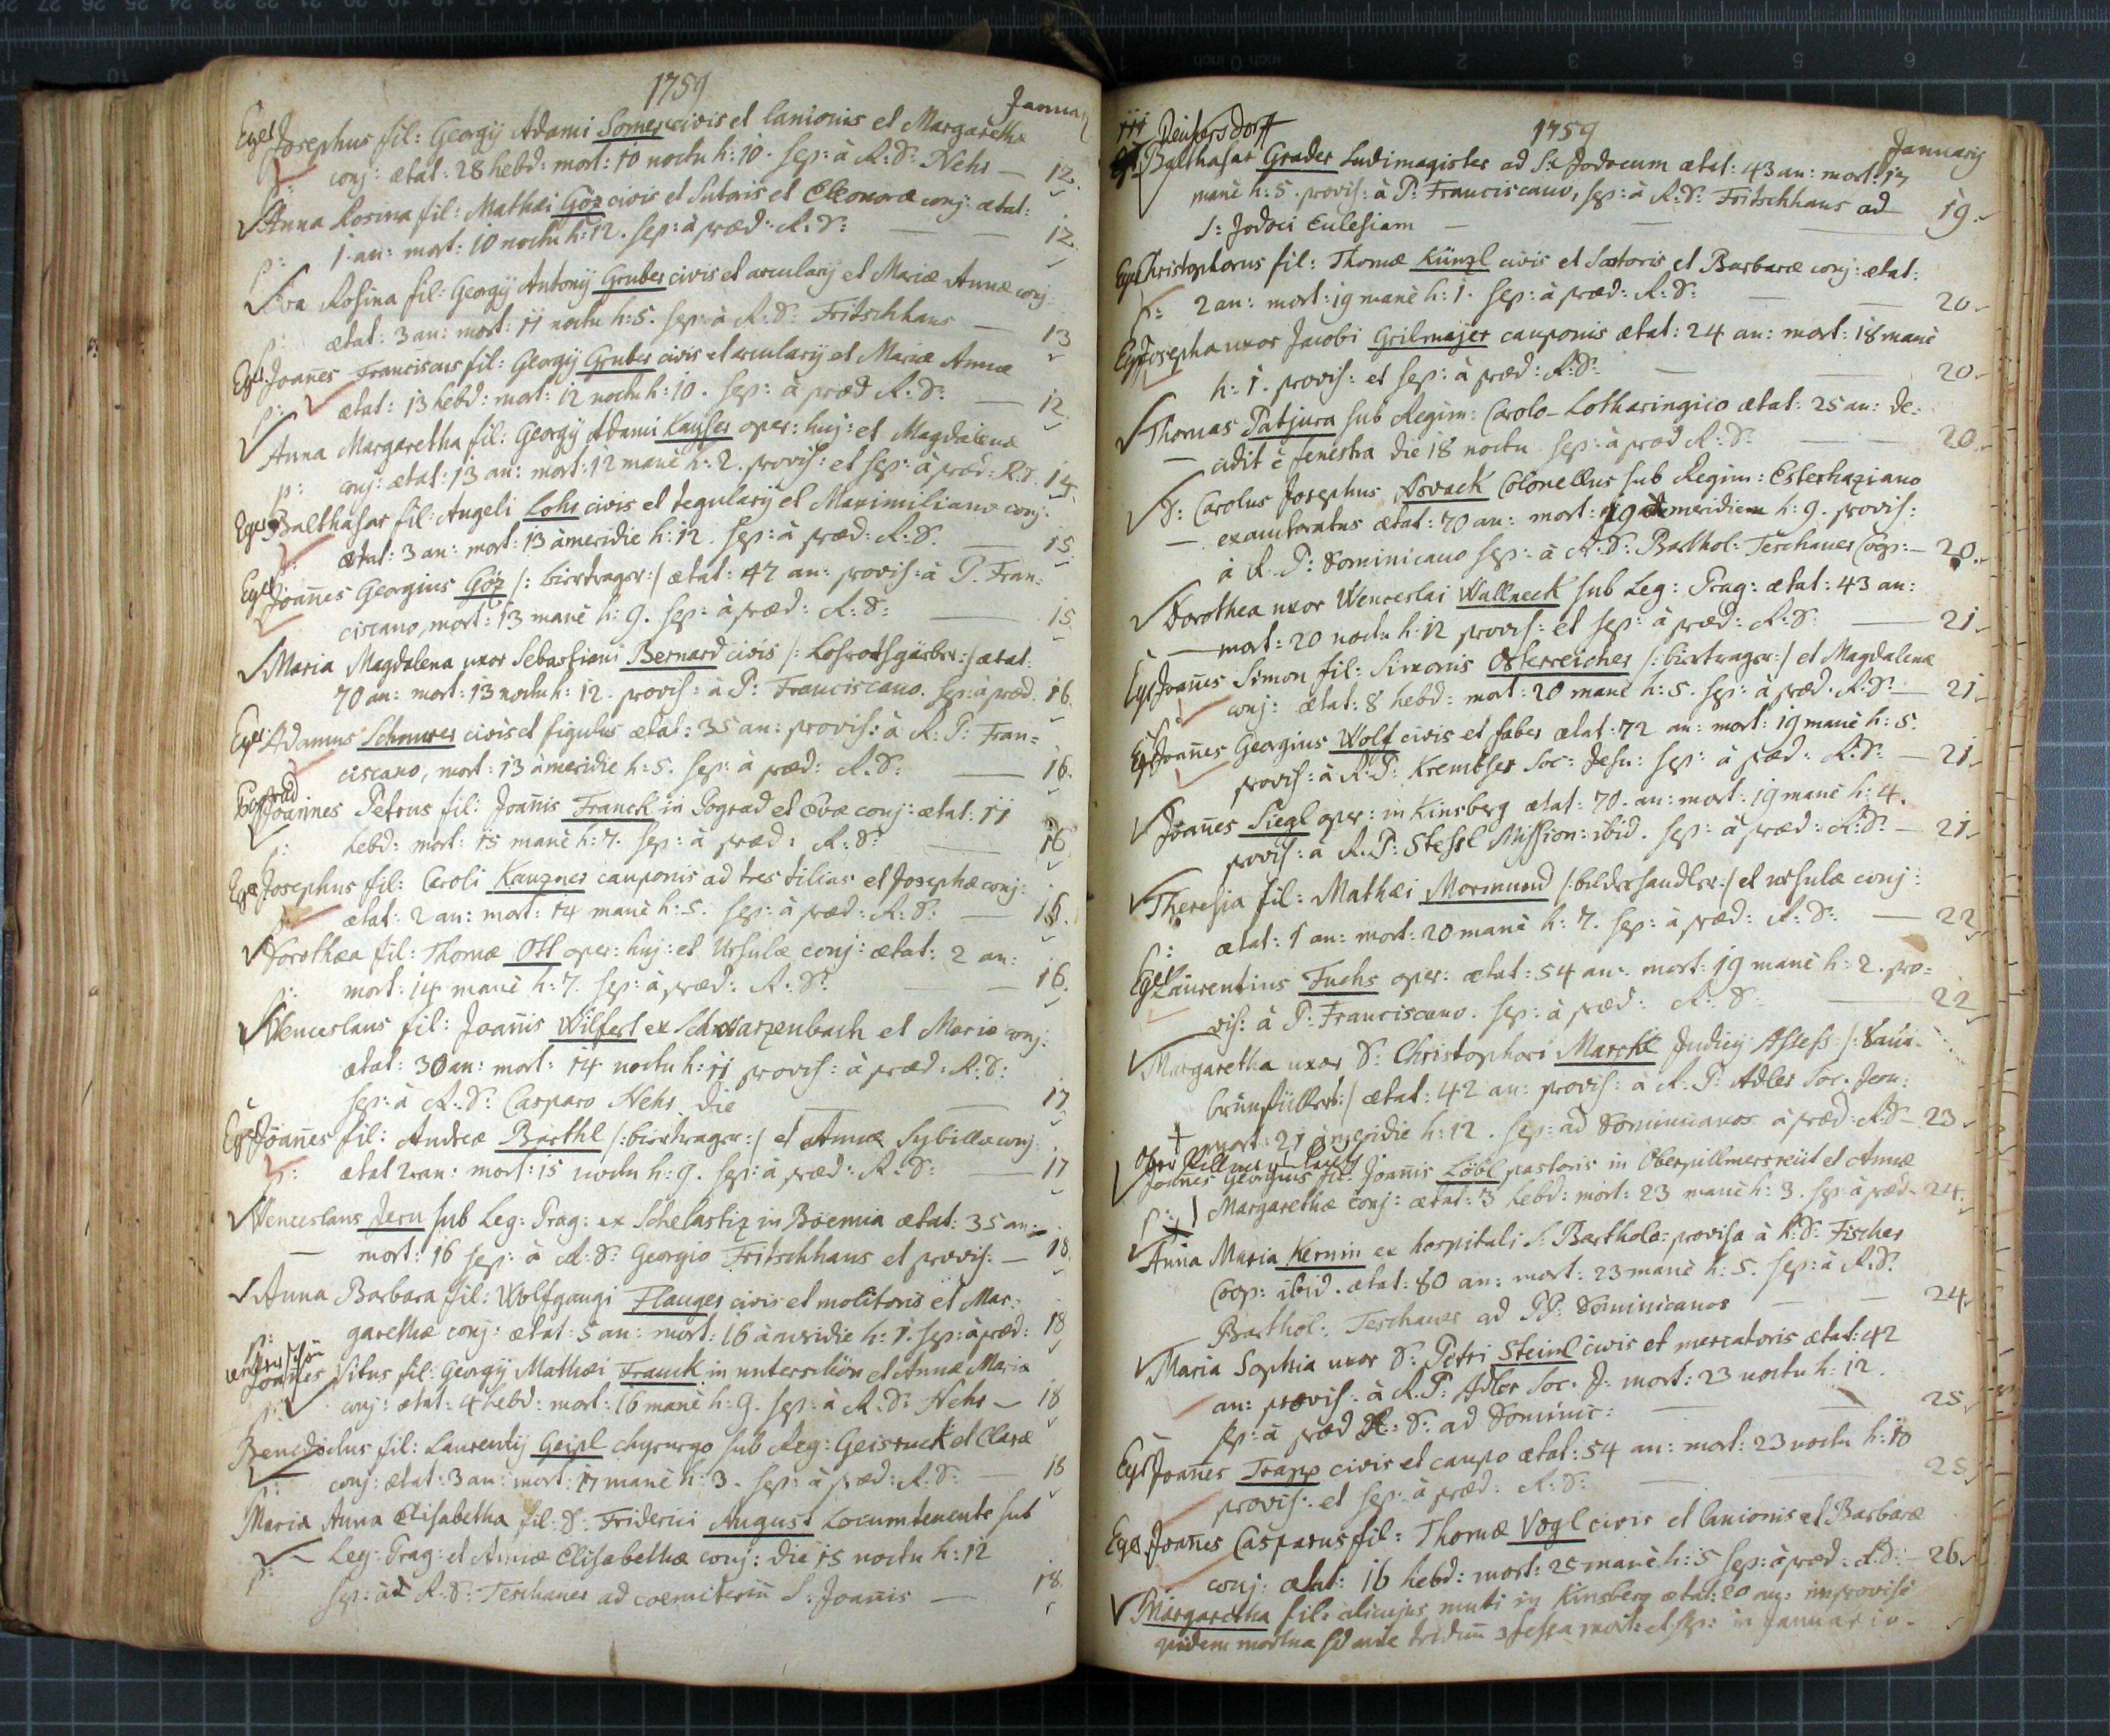 1759
Januar
Eger Josephus fil: Georgÿ Adami Somer civis et lanionis et Margarethæ
p: conj: ætat: 28 hebd: mort: 10 noctu h: 10. sep: à R: D: Nehr — 12.
Anna Rosina fil: Mathæi Göz civis et Sutoris et Eleonoræ conj: ætat:
p: 1 an: mort: 10 noctu h: 12. sep: à præd: R: D: — — 12.
Eva Rosina fil: Georgÿ Antonÿ Gruber civis et arcularÿ et Mariæ Annæ conj:
p: ætat: 3 an: mort: 11 noctu h: 5. sep: à R: D: Fritschhans — 13
Eger Joanes Franciscus fil: Georgÿ Gruber civis et arcularÿ et Mariæ Annæ
p: ætat: 13 hebd: mort: 12 noctu h: 10. sep: à præd R: D: — 12.
Anna Margaretha fil: Georgÿ Adami Kauser oper: huj: et Magdalenæ
p: conj: ætat: 13 an: mort: 12 manè h: 2. provis: et sep: à præd: R: D. 14.
Eger Balthasar fil: Angeli Lohr civis et tegularÿ et Maximiliana conj:
p: ætat: 3 an: mort: 13 àmeridie h: 12. sep: à præd: R: D. — 15
Eger Joanes Georgius Göz /: biertrager :/ ætat: 47 an: provis: à P. Fran:
ciscano, mort: 13 manè h: 9. sep: à præd: R: D: — 15.
Maria Magdalena uxor Sebastiani Bernard civis ætat:
70 an: mort: 13 noctu h: 12. provis: à P: Franciscano. sep: à præd. 16.
Eger Adamus Schnurer civis et figulus ætat: 35 an: provis: à R: P: Fran=
ciscano, mort: 13 àmeridie h: 5. sep: à præd: R: D: — 16.
Pograd
Joannes Petrus fil: Joanis Franck in Pograd et Evæ conj: ætat: 11
p: hebd: mort: 15 manè h: 7. sep: à præd: R: D: — 16
Eger Josephus fil: Caroli Kauzner cauponis ad tres tilias et Josephæ conj:
p: ætat: 2 an: mort: 14 manè h: 5. sep: à præd: R: D: — 16.
Dorothæa fil: Thomæ Ott oper: huj: et Ursulæ conj: ætat: 2 an:
p: mort: 14 manè h: 7. sep: à præd: R: D: — — 16.
Wenceslaus fil: Joanis Wilfert ex Schwarzenbach et Maria conj:
ætat: 30 an: mort: 14 noctu h: 11 provis: à præd: R: D:
sep: à R: D: Casparo Nehr die — — 17
Eger Joanes fil: Andreæ Barthl /: biertrager :/ et Annæ Sybilla conj:
p: ætat an: mort: 15 noctu h: 9. sep: à præd: R: D: — 17
Wenceslaus Jeru sub Leg: Prag: ex Schelastiz in Böemia ætat: 35 an:
— mort: 16 sep: à R: D: Georgio Fritschhans et provis: — 18
Anna Barbara fil: Wolfgangi Flauger civis et molitoris et Mar:
p: garethæ conj: ætat: 5 an: mort: 16 àmeridie h: 1. sep: à præd: 18
unterschön
Joanes Vitus fil: Georgÿ Mathæi Franck in unterschön et Annæ Maria
p: conj: ætat: 4 hebd: mort: 16 manè h: 9. sep: à R: D: Nehr — 18
Benedictus fil: Laurentÿ Geipl chyrurgo sub Reg: Geisruck et Claræ
p: conj: ætat: 3 an: mort: 17 manè h: 3. sep: à præd: R: D: — 18
Maria Anna Elisabetha fil: D: Friderici August Locumtenente sub
p: — Leg: Prag: et Annæ Elisabethæ conj: die 15 noctu h: 12
sep: à R: D: Teschauer ad coemiteriū S: Joanis — 18.
1759
Januarÿ
Balthasar Grader Ludimagister ad S: Jodocum ætat: 43 an: mort: 17
manè h: 5. provis: à P: Franciscano, sep: à R: D: Fritschhans ad 19.
S: Jodoci Eulesiam —
Eger Christophorus fil: Thomæ Künzl civis et Sartoris et Barbaræ conj: ætat:
p: 2 an: mort: 19 manè h: 1. sep: à præd: R: D: — — 20.
Eger Josepha uxor Jacobi Grilmajer cauponis ætat: 24 an: mort: 18 manè
h: 1. provis: et sep: à præd: R: D: — — 20.
Thomas Patjura sub Regim: Carolo-Lotharingico ætat: 25 an: de:
— cidit è fenestra die 18 noctu sep: à præd R: D: — — 20.
D: Carolus Josephus Novack Colonellus sub Regim: Esterhaziano
— exauctoratus ætat: 70 an: mort: 19 meridiem h: 9. provis:
à R. P: Dominicano sep: à R: D: Barthol: Teschauer Coop: — 20.
Dorothea uxor Wenceslai Wallneck sub Leg: Prag: ætat: 43 an:
— mort: 20 noctu h: 12 provis: et sep: à præd: R: D: — 21.
Eger Joanes Simon fil: Simonis Osterreicher /: biertrager :/ et Magdalenæ
p: conj: ætat: 8 hebd: mort: 20 manè h: 5. sep: à præd: R: D: — 21.
Eger Joanes Georgius Wolf civis et faber ætat: 72 an: mort: 19 manè h: 5.
provis: à R: P: Krembser Soc: Jesu: sep: à præd: R: D: — 21.
Joanes Siegl oper: in Kinsberg ætat: 70. an: mort: 19 manè h: 4.
provis: à R. P: Stessl Mission: ibid. sep: à præd: R: D: — 21.
Theresia fil: Mathæi Mormund /: bilderhandler :/ et ursulæ conj:
p: ætat: 1 an: mort: 20 manè h: 7. sep: à præd: R: D: — 22
Eger Laurentius Fuchs oper: ætat: 54 an: mort: 19 manè h: 2. pro=
vis: à P: Franciscano. sep: à præd: R: D: — 22
Margaretha uxor D: Christophori Marckl Judicÿ Assess /: Saur-
brunfüllers :/ ætat: 42 an: provis: à R. P: Adler Soc. Jesu:
mort: 21 àmeridie h: 12. sep: ad Dominicanos à præd: R: D — 23.
Joanes Georgius fil: Joanis Löbl pastoris in Oberpillmersreüt et Annæ
p: Margarethæ conj: ætat: 3 hebd: mort: 23 manè h: 3. sep: à præd. 24.
Anna Maria Kernin ex hospitali S: Bartholo: provisa à R: D: Fischer
Coop: ibid. ætat: 80 an: mort: 23 manè h: 5. sep: à R: D:
Barthol: Teschauer ad PP: Dominicanos — — 24.
Maria Sophia uxor D: Petri Steinl civis et mercatoris ætat: 42
an: provis: à R. P: Adler Soc: J: mort: 23 noctu h: 12.
sep: à præd R: D: ad Dominic: — — 25.
Eger Joanes Trapp civis et caupo ætat: 54 an: mort: 23 noctu h: 10
provis: et sep: à præd: R: D: — 25
Eger Joanes Casparus fil: Thomæ Vogl civis et lanionis et Barbaræ
conj: ætat: 16 hebd: mort: 25 manè h: 5 sep: à præd: R: D: — 26.
Margaretha fil: alicujus muti in Kinsberg ætat: 20 an: improvisè
quidem mortua sed ante triduū mort: et sep: in Januario.